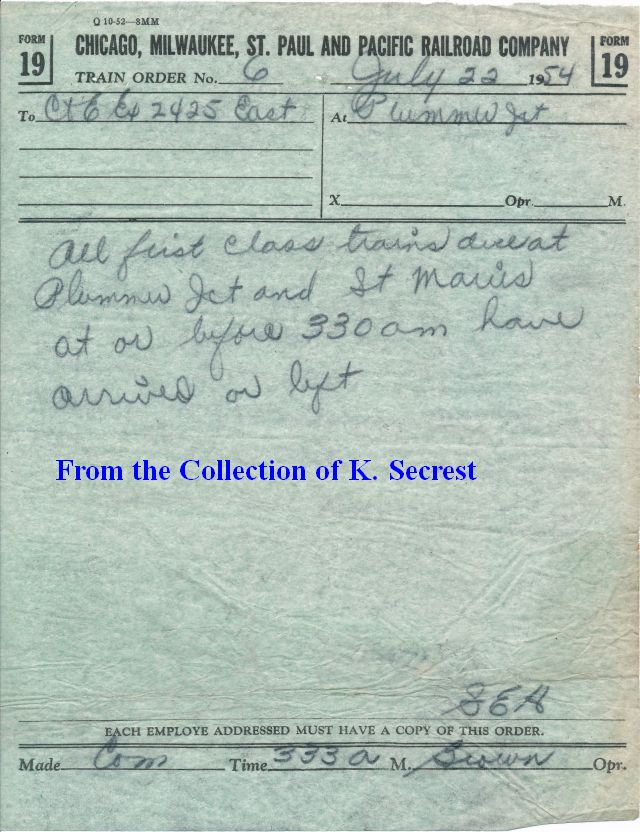 Q 10-52—8MM
FORM 19
CHICAGO, MILWAUKEE, ST. PAUL AND PACIFIC RAILROAD COMPANY
FORM 19
TRAIN ORDER No. 6 July 22 1954
To C&E Ex 2425 East At Plummer Jct
X Opr. M.
All first class trains due at
Plummer Jct and St Maries
at or before 330 am have
arrived or left
From the Collection of K. Secrest
SEH
EACH EMPLOYE ADDRESSED MUST HAVE A COPY OF THIS ORDER.
Made Com Time 333 a M. Brown Opr.